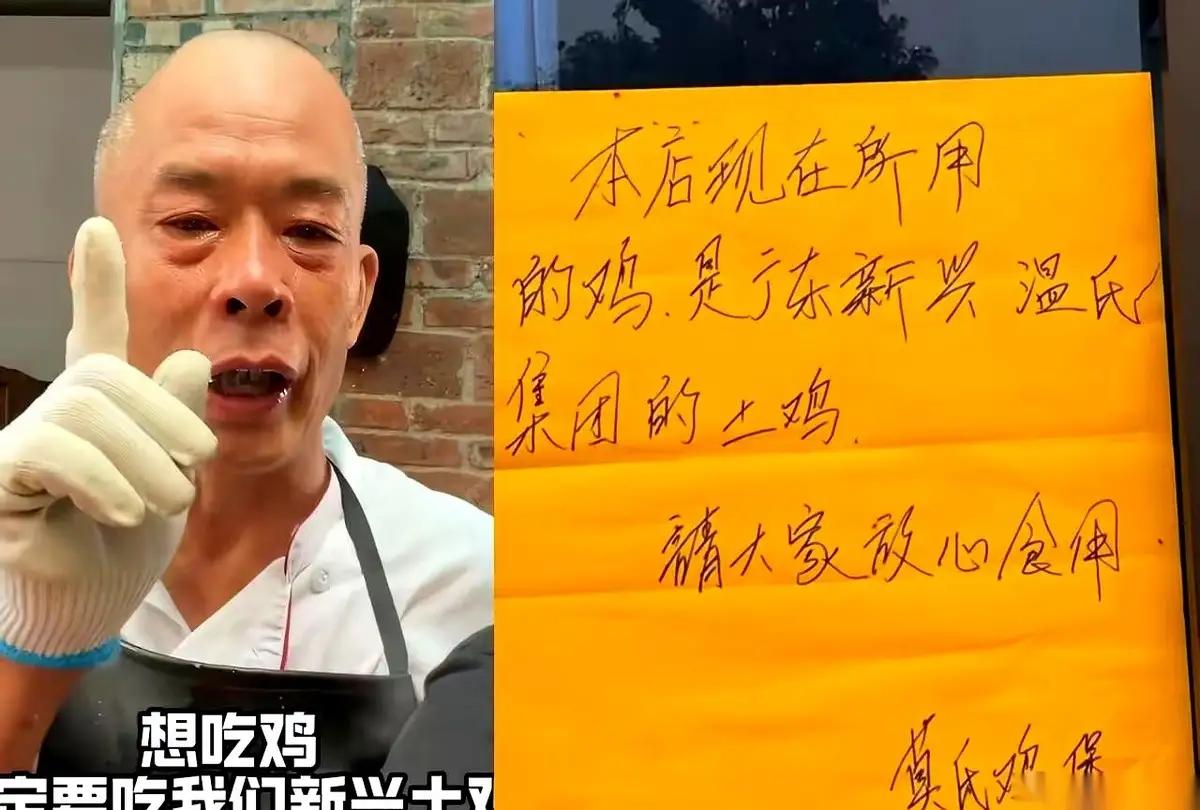 想吃鸡
定要吃我们新兴土鸡
本店现在所用
的鸡.是广东新兴温氏
集团的土鸡.
請大家放心食用
莫氏鸡煲